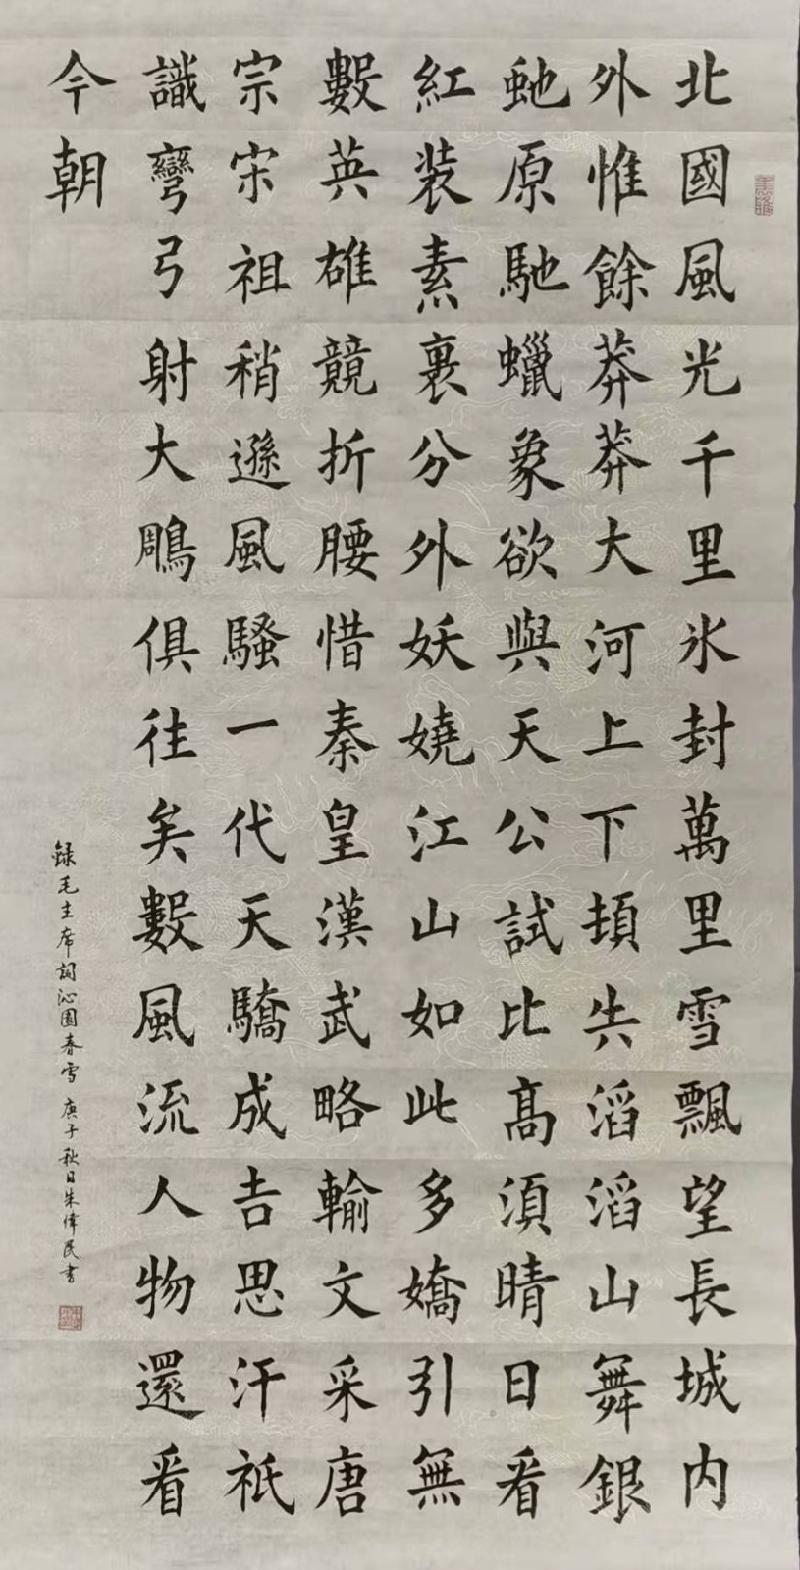 北國風光千里氷封萬里雪飄望長城内
外惟餘莽莽大河上下頓失滔滔山舞銀
虵原馳蠟象欲與天公試比髙須晴日看
紅装素裹分外妖嬈江山如此多嬌引無
數英雄競折腰惜秦皇漢武略輸文采唐
宗宋祖稍遜風騷一代天驕成吉思汗祇
識彎弓射大鵰俱往矣數風流人物還看
今朝
録毛主席詞沁園春雪 庚子秋日朱偉民書